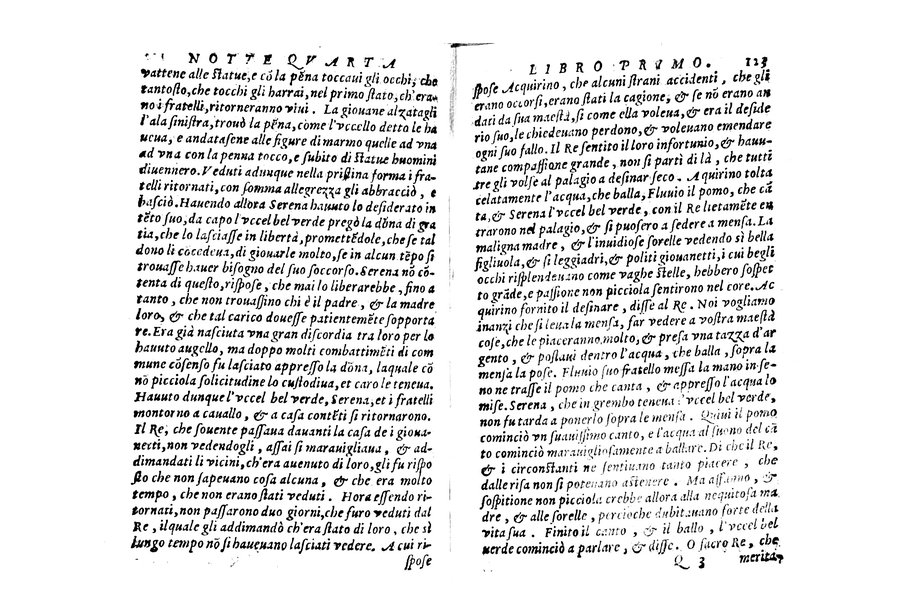 NOTTE QVARTA
vattene alle ſtatue, e cõ la pẽna toccaui gli occhi, che
tantoſto, che tocchi gli harrai, nel primo ſtato, ch'era-
no i fratelli, ritorneranno viui. La giouane alzatagli
l'ala ſiniſtra, trouò la pẽna, come l'vccello detto le ha
ueua, e andataſene alle figure di marmo quelle ad vna
ad vna con la penna tocco, e ſubito di ſtatue huomini
diuennero. Veduti adunque nella priſtina forma i fra-
telli ritornati, con ſomma allegrezza gli abbracciò, e
baſciò. Hauendo allora Serena hauuto lo deſiderato in
tẽto ſuo, da capo l'vccel bel verde pregò la dõna di gra
tia, che lo laſciaſſe in libertà, promettẽdole, che ſe tal
dono li cõcedeua, di giouarle molto, ſe in alcun tẽpo ſi
trouaſſe hauer biſogno del ſuo ſoccorſo. Serena nõ cõ-
tenta di queſto, riſpoſe, che mai lo liberarebbe, fino a
tanto, che non trouaſſino chi è il padre, & la madre
loro, & che tal carico doueſſe patientemẽte ſopporta
re. Era già naſciuta vna gran diſcordia tra loro per lo
hauuto augello, ma doppo molti combattimẽti di com
mune cõſenſo fu laſciato appreſſo la dõna, laquale cõ
nõ picciola ſolicitudine lo cuſtodiua, et caro le teneua.
Hauuto dunque l'vccel bel verde, Serena, et i fratelli
montorno a cauallo, & a caſa contẽti ſi ritornarono.
Il Re, che ſouente paſſaua dauanti la caſa de i gioua-
netti, non vedendogli, aſſai ſi marauigliaua, & ad-
dimandati li vicini, ch'era auenuto di loro, gli fu riſpo
ſto che non ſapeuano coſa alcuna, & che era molto
tempo, che non erano ſtati veduti. Hora eſſendo ri-
tornati, non paſſarono duo giorni, che furo veduti dal
Re, ilquale gli addimandò ch'era ſtato di loro, che sì
lungo tempo nõ ſi haueuano laſciati vedere. A cui ri-
ſpoſe
LIBRO PRIMO. 123
ſpoſe Acquirino, che alcuni ſtrani accidenti, che gli
erano occorſi, erano ſtati la cagione, & ſe nõ erano an
dati da ſua maeſtà, ſi come ella voleua, & era il deſide
rio ſuo, le chiedeuano perdono, & voleuano emendare
ogni ſuo fallo. Il Re ſentito il loro infortunio, & hauu-
tane compaſſione grande, non ſi partì di là, che tutti
tre gli volſe al palagio a deſinar ſeco. Aquirino tolta
celatamente l'acqua, che balla, Fluuio il pomo, che cã
ta, & Serena l'vccel bel verde, con il Re lietamẽte en
trarono nel palagio, & ſi puoſero a ſedere a menſa. La
maligna madre, & l'inuidioſe ſorelle vedendo sì bella
figliuola, & ſi leggiadri, & politi giouanetti, i cui begli
occhi riſplendeuano come vaghe ſtelle, hebbero ſoſpet
to grãde, e paſſione non picciola ſentirono nel core. Ac
quirino fornito il deſinare, diſſe al Re. Noi vogliamo
inanzi che ſi leua la menſa, far vedere a voſtra maeſtà
coſe, che le piaceranno molto, & preſa vna tazza d'ar
gento, & poſtaui dentro l'acqua, che balla, ſopra la
menſa la poſe. Fluuio ſuo fratello meſſa la mano in ſe-
no ne traſſe il pomo che canta, & appreſſo l'acqua lo
miſe. Serena, che in grembo teneua l'vccel bel verde,
non fu tarda a ponerlo ſopra le menſa. Quiui il pomo
cominciò vn ſuauiſſimo canto, e l'acqua al ſuono del cã
to cominciò marauiglioſamente a ballare. Di che il Re,
& i circonſtanti ne ſentiuano tanto piacere, che
dalla riſa non ſi poteuano aſtenere. Ma affanno, &
ſoſpitione non picciola crebbe allora alla nequitoſa ma
dre, & alle ſorelle, percioche dubitauano forte della
vita ſua. Finito il canto, & il ballo, l'vccel bel
uerde cominciò a parlare, & diſſe. O ſacro Re, che
Q 3 merita-